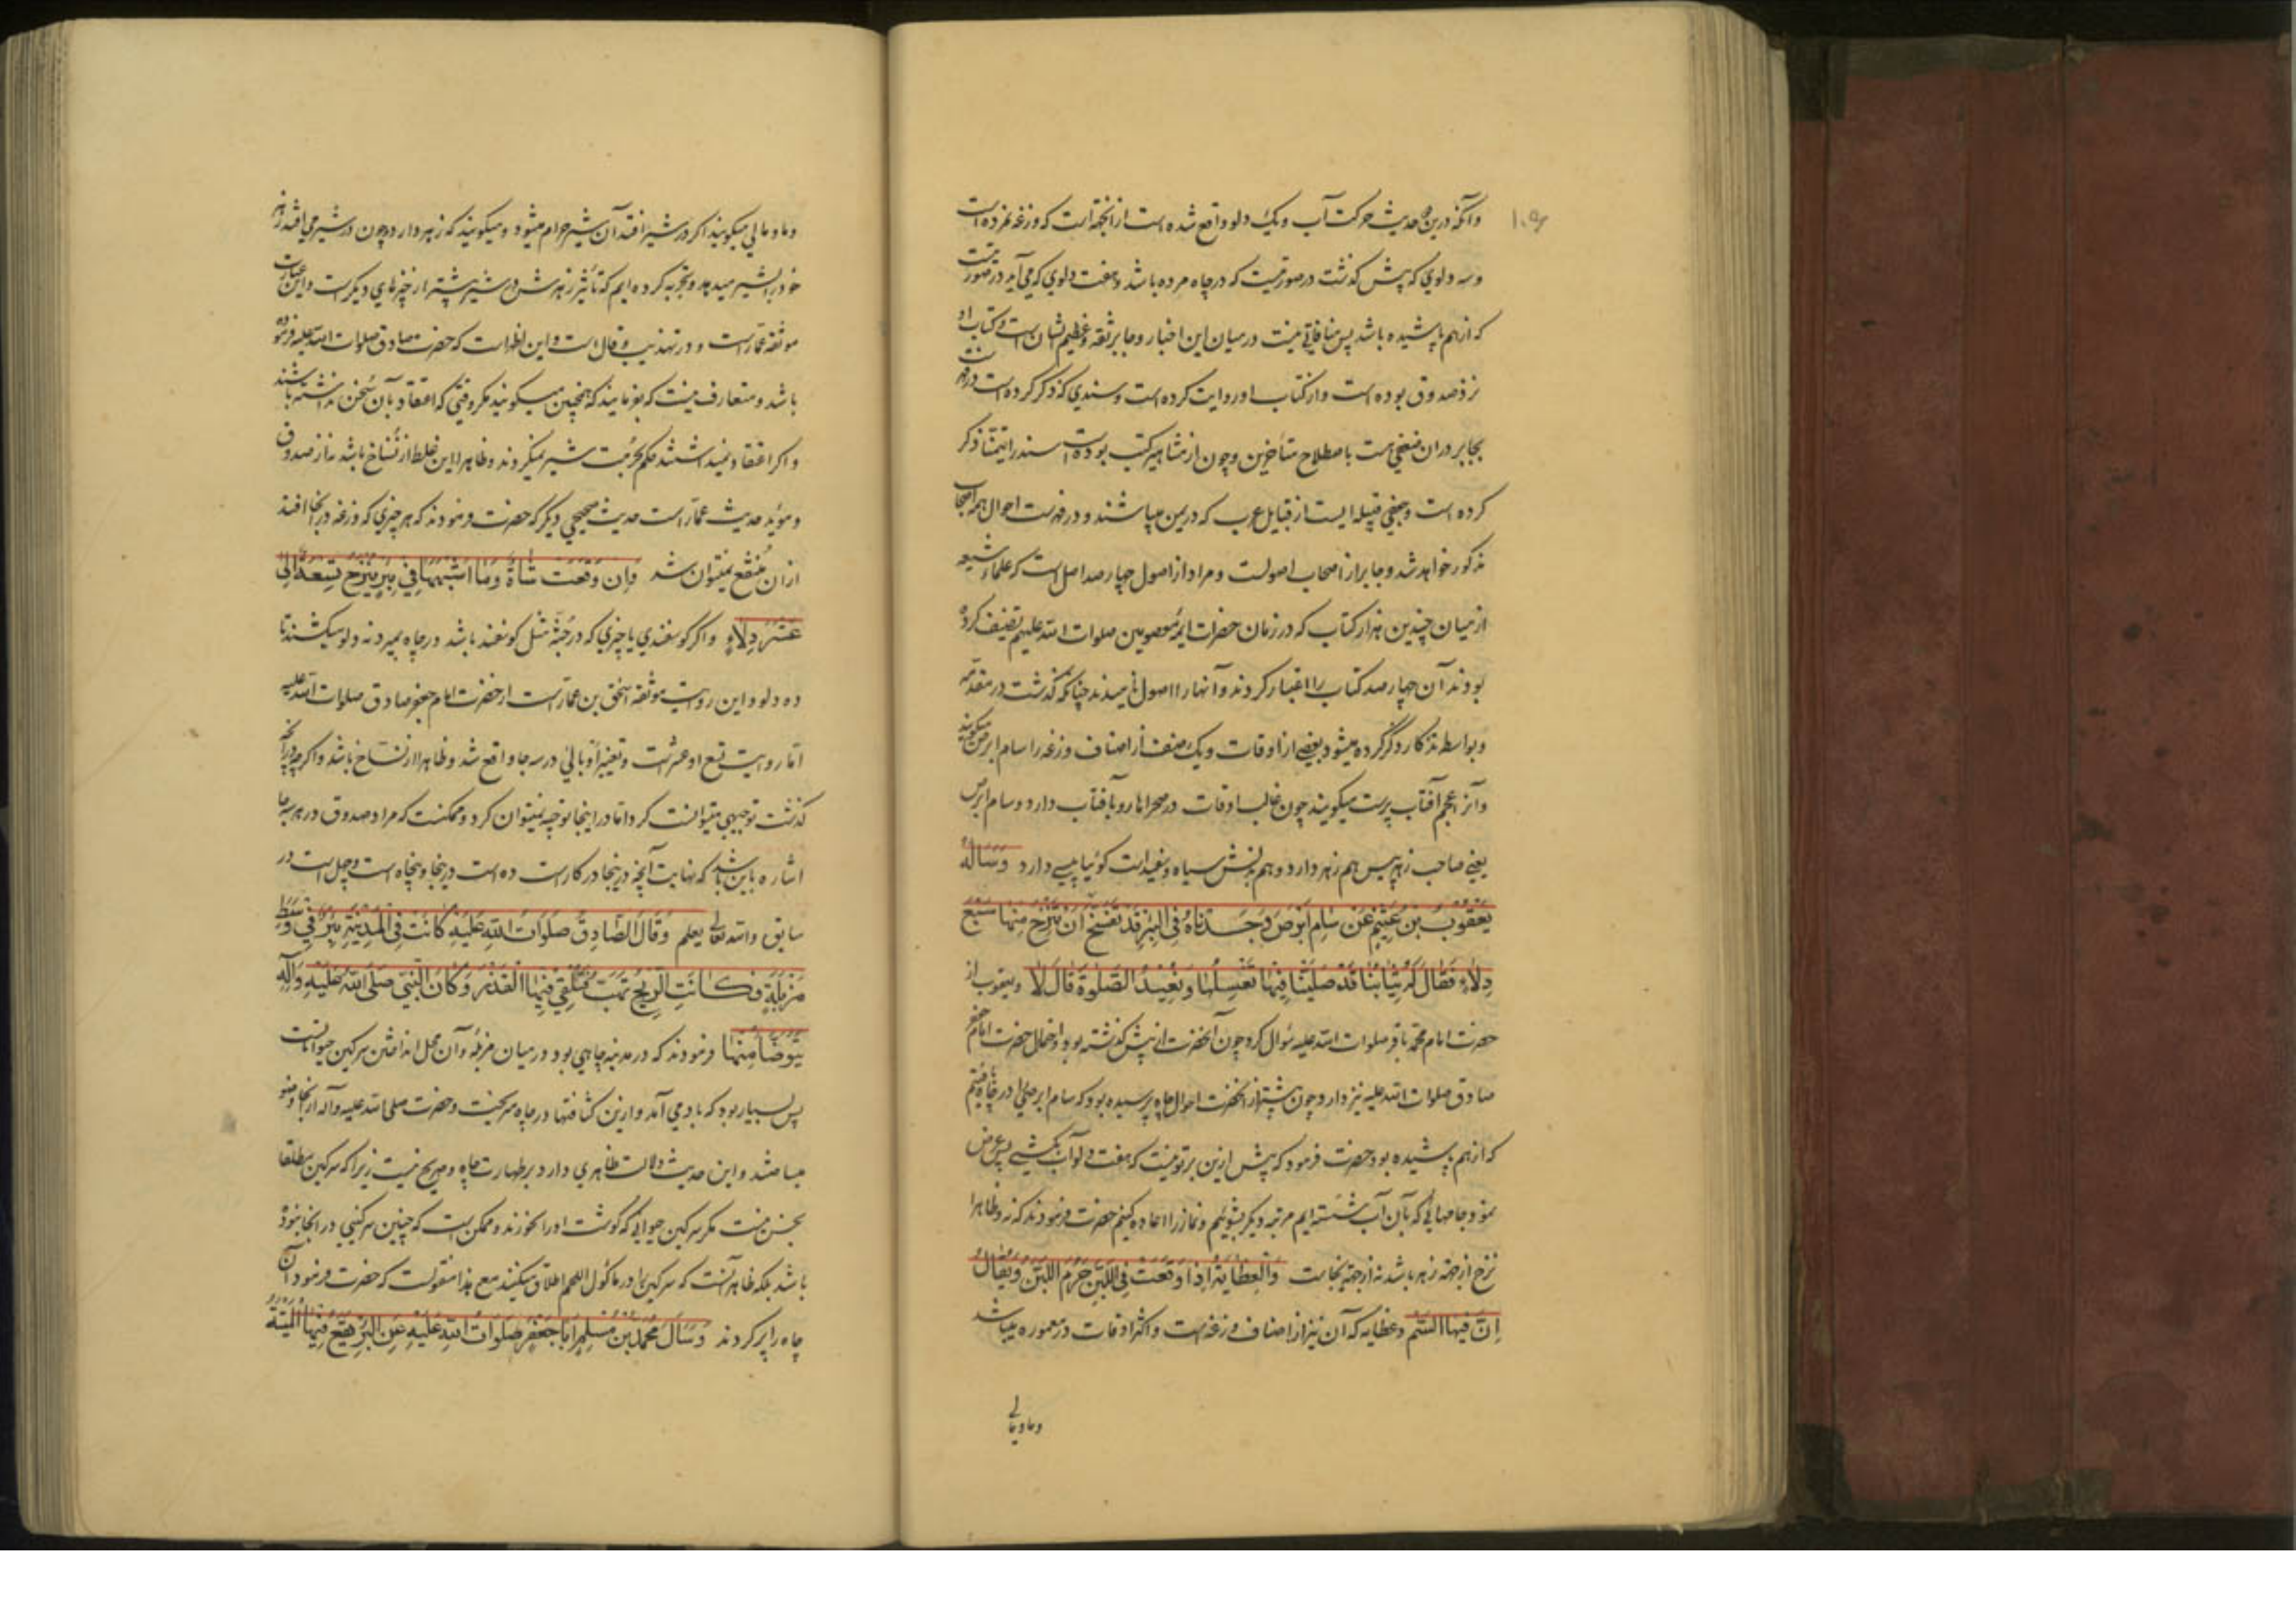 ۱۰۹
و آنکه درین حدیث حرکت آب و یک دلو واقع شده است از انجهة است که وزغه نمرده است
و سه دلوی که پیش گذشت در صورتیست که در چاه مرده باشد و هفت دلوی که می آید در صورتیست
که از هم پاشیده باشد پس منافاتی نیست در میان این اخبار و جابر ثقه و عظیم الشان است و کتاب او
نزد صدوق بوده است و از کتاب او روایت کرده است و سندی که ذکر کرده است در فهرست
بجابر در ان ضعفی هست باصطلاح متأخرین و چون از مشاهیر کتب بوده است سند را تیمنا ذکر
کرده است و جعفی قبیله ایست از قبایل عرب که در یمن میباشند و در فهرست احوال همه اصحاب
مذکور خواهد شد و جابر از اصحاب اصولست و مراد از اصول چهار صد اصل است که علماء شیعه
از میان چندین هزار کتاب که در زمان حضرات ایمه معصومین صلوات الله علیهم تصنیف کرده
بودند آن چهار صد کتاب را اعتبار کردند و آنها را اصول نامیدند چنانکه گذشت در مقدمه
و بواسطه تذکار دگر کرده میشود بعضی از اوقات و یک صنف از اصناف وزغه را سام ابرص میگویند
و آنرا عجم آفتاب پرست میگویند چون غالب اوقات در صحراها رو بآفتاب دارد و سام ابرص
یعنی صاحب زهر پیس هم زهر دارد و هم بدنش سیاه و سفید است گوئیا پیسی دارد وَسَاَلَهُ
یَعْقُوبُ بْنُ عُثَیْمٍ عَنْ سَامِ اَبْرَصَ وَجَدْنَاهُ فِی الْبِئْرِ قَدْ تَفَسَّخَ اَنْ یُنْزَحَ مِنْهَا سَبْعُ
دِلَاءٍ فَقَالَ لَهُ ثِیَابُنَا قَدْ صَلَّیْنَا فِیهَا نَغْسِلُهَا وَ نُعِیْدُ الصَّلٰوةَ قَالَ لَا و یعقوب از
حضرت امام محمد باقر صلوات الله علیه سؤال کرد چون آنحضرت از پیش گذشته بود و احتمال حضرت امام جعفر
صادق صلوات الله علیه نیز دارد و چون پیشتر از آنحضرت احوال چاه پرسیده بود که سام ابرص را در چاه یافتیم
که از هم پاشیده بود حضرت فرمود که پیش ازین بر تو نیست که هفت دلو آب بکشی پس عرض
نمود جامهائی که بآن آب شسته ایم مرتبه دیگر بشوئیم و نماز را اعاده کنیم حضرت فرمودند که نه و ظاهرا
نزح از جهة زهر باشد نه از جهة نجاست وَالْعِظَایَةُ اِذَا وَقَعَتْ فِی اللَّبَنِ حَرُمَ اللَّبَنُ وَ یُقَالُ
اِنَّ فِیهَا السَّمَّ و عظایه که آن نیز از اصناف وزغه است و اکثر اوقات در معموره میباشد
و ما و مالی
و ما و مالی میگویند اگر در شیر افتد آن شیر حرام میشود و میگویند که زهر دارد و چون در شیر می افتد زهر
خود را بشیر میدهد و تجربه کرده ایم که تأثیر زهرش در شیر بیشتر از چیزهای دیگر است و این عبارت
موثقه عمار است و در تهذیب و قال است و این اظهر است که حضرت صادق صلوات الله علیه فرموده
باشد و متعارف نیست که بفرمایند که همچنین میگویند مگر وقتی که اعتقاد بآن سخن نداشته باشند
و اگر اعتقاد نمیداشتند حکم بحرمت شیر نمیکردند و ظاهرا این غلط از نُسّاخ باشد نه از صدوق
و مؤید حدیث عمار است حدیث صحیحی دیگر که حضرت فرمودند که هر چیزی که وزغه در آنجا افتد
از ان منتفع نمیتوان شد وَ اِنْ وَقَعَتْ شَاةٌ وَ مَا اَشْبَهَهَا فِی بِئْرٍ یُنْزَحُ تِسْعَةٌ اِلٰی
عَشَرِ دِلَاءٍ و اگر گوسفندی یا چیزی که در جُثّه مثل گوسفند باشد در چاه بمیرد نه دلو میکشند تا
ده دلو و این روایت موثقه اسحق بن عمار است از حضرت امام جعفر صادق صلوات الله علیه
اما روایت تسع او عشر است و تغییر أو بالی در سه جا واقع شد و ظاهرا از نساخ باشد و اگر چه در آنچه
گذشت توجیهی میتوانست کرد اما در اینجا توجیه نمیتوان کرد و ممکنست که مراد صدوق در هر سه جا
اشاره باین باشد که نهایت آنچه در اینجا در کار است ده است در پنجا و پنجاه است و چل است در
سابق والله تعالی یعلم وَ قَالَ الصَّادِقُ صَلَوَاتُ اللهِ عَلَیْهِ کَانَتْ فِی الْمَدِیْنَةِ بِئْرٌ فِی وَسَطِ
مَزْبَلَةٍ فَکَانَتِ الرِّیْحُ تَهُبُّ فَتُلْقِی فِیْهَا الْقَذَرَ وَ کَانَ النَّبِیُّ صَلَّی اللهُ عَلَیْهِ وَآلِهِ
یَتَوَضَّأُ مِنْهَا فرمودند که در مدینه چاهی بود در میان مزبله و آن محل انداختن سرگین حیوانات
پس بسیار بود که باد می آمد و ازین کثافتها در چاه میریخت و حضرت صلی الله علیه و آله از آنجا وضو
میساختند و این حدیث دلالت ظاهری دارد بر طهارت چاه و صریح نیست زیرا که سرگین مطلقا
نجس نیست مگر سرگین حیوانی که گوشت او را نخورند و ممکن است که چنین سرگینی در آنجا نبوده
باشد بلکه ظاهر آنست که سرگین را در ماکول اللحم اطلاق میکنند مع هذا منقولست که حضرت فرمود آن
چاه را پر کردند وَ سَاَلَ مُحَمَّدُ بْنُ مُسْلِمٍ اَبَا جَعْفَرٍ صَلَوَاتُ اللهِ عَلَیْهِ عَنِ الْبِئْرِ یَقَعُ فِیْهَا الْمَیْتَةُ